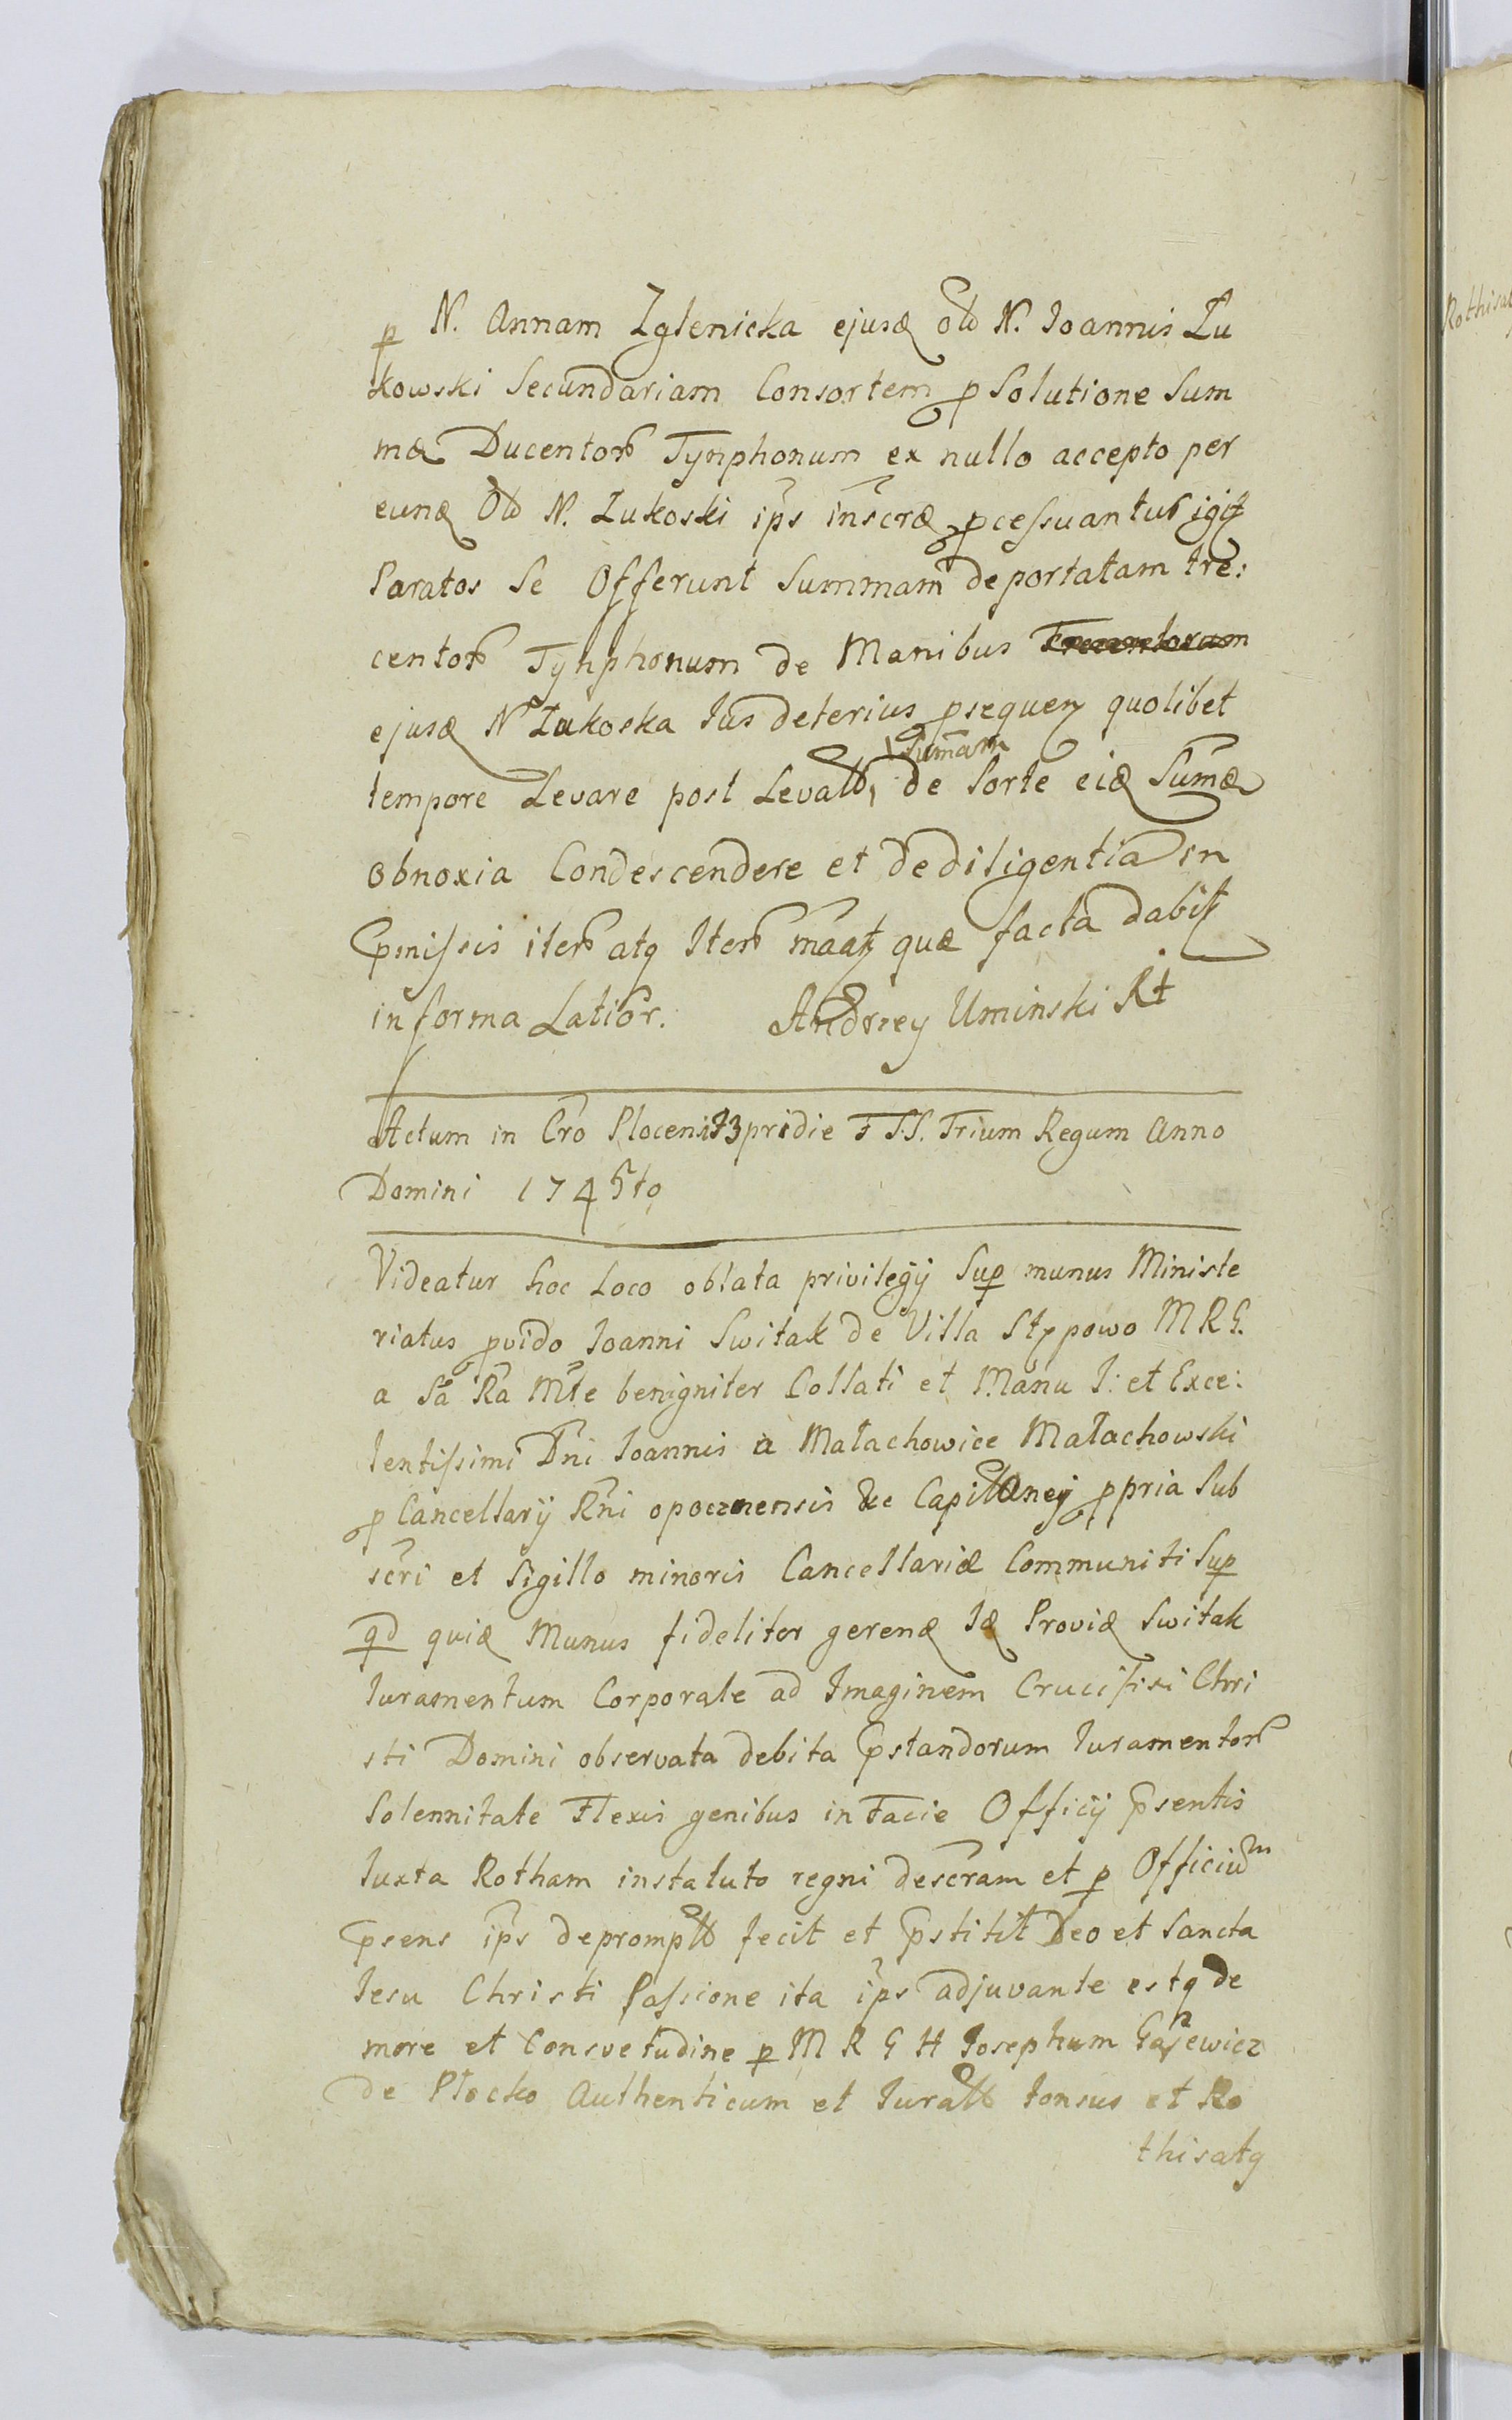 p N. Annam Zglenicka ejusd olo N. Joannis Zu
kowski Secundariam Consortem p Solutione Sum
mæ Ducentor Tynphonum ex nullo accepto per
eund Olo N. Zukoski ips inscræ pcessuantur igit
Paratos Se Offerunt Summam deportatam tre:
centor Tynphonum de Manibus Trecentorum
ejusd N Zukoska Jus deterius psequen quolibet
Sumam
tempore Levare post Levato, de Sorte eid Sumæ
obnoxia Condescendere et de diligentia in
pmissis iter atq Iter maat quæ facta dabit
in forma Latior. Andrzey Uminski Rt
Actum in Cro Plocensi 3 pridie F SS. Trium Regum Anno
Domini 1745to
Videatur hoc Loco oblata privilegÿ Sup munus Ministe
riatus pvido Joanni Switak de Villa Stypowo M R G.
a Sa Ra Mte benigniter Collati et Manu J: et Exce:
lentissimi Dni Joannis a Małachowice Małachowski
p Cancellarÿ Rni opocznensis &c Capitanej ppria Sub
scri et Sigillo minoris Cancellariæ Communiti Sup
qd quid Munus fideliter gerend Id Provid Switak
Juramentum Corporale ad Imaginem Crucifixi Chri
sti Domini observata debita pstandorum Juramentor
Solennitate Flexis genibus in Facie Officÿ psentis
Juxta Rotham in statuto regni descram et p Officium
psens ips deprompto fecit et pstitit Deo et Sancta
Jesu Christi Passione ita ips adjuvante estq de
more et Consvetudine p M R G H Josephum Gajewicz
de Płocko Authenticum et Jurato tonsus et Ro
thisatq
Rothisat